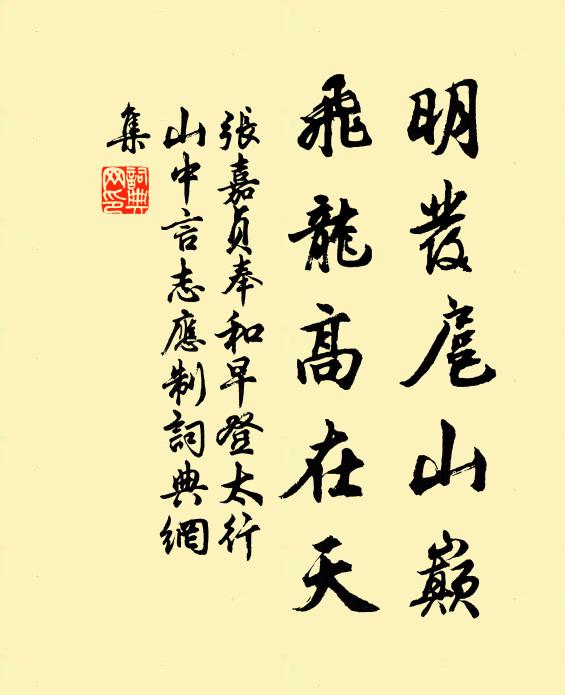 明發扈山巔
飛龍高在天
張嘉貞奉和早登太行
山中言志應制詞典網
集
詞典
网印